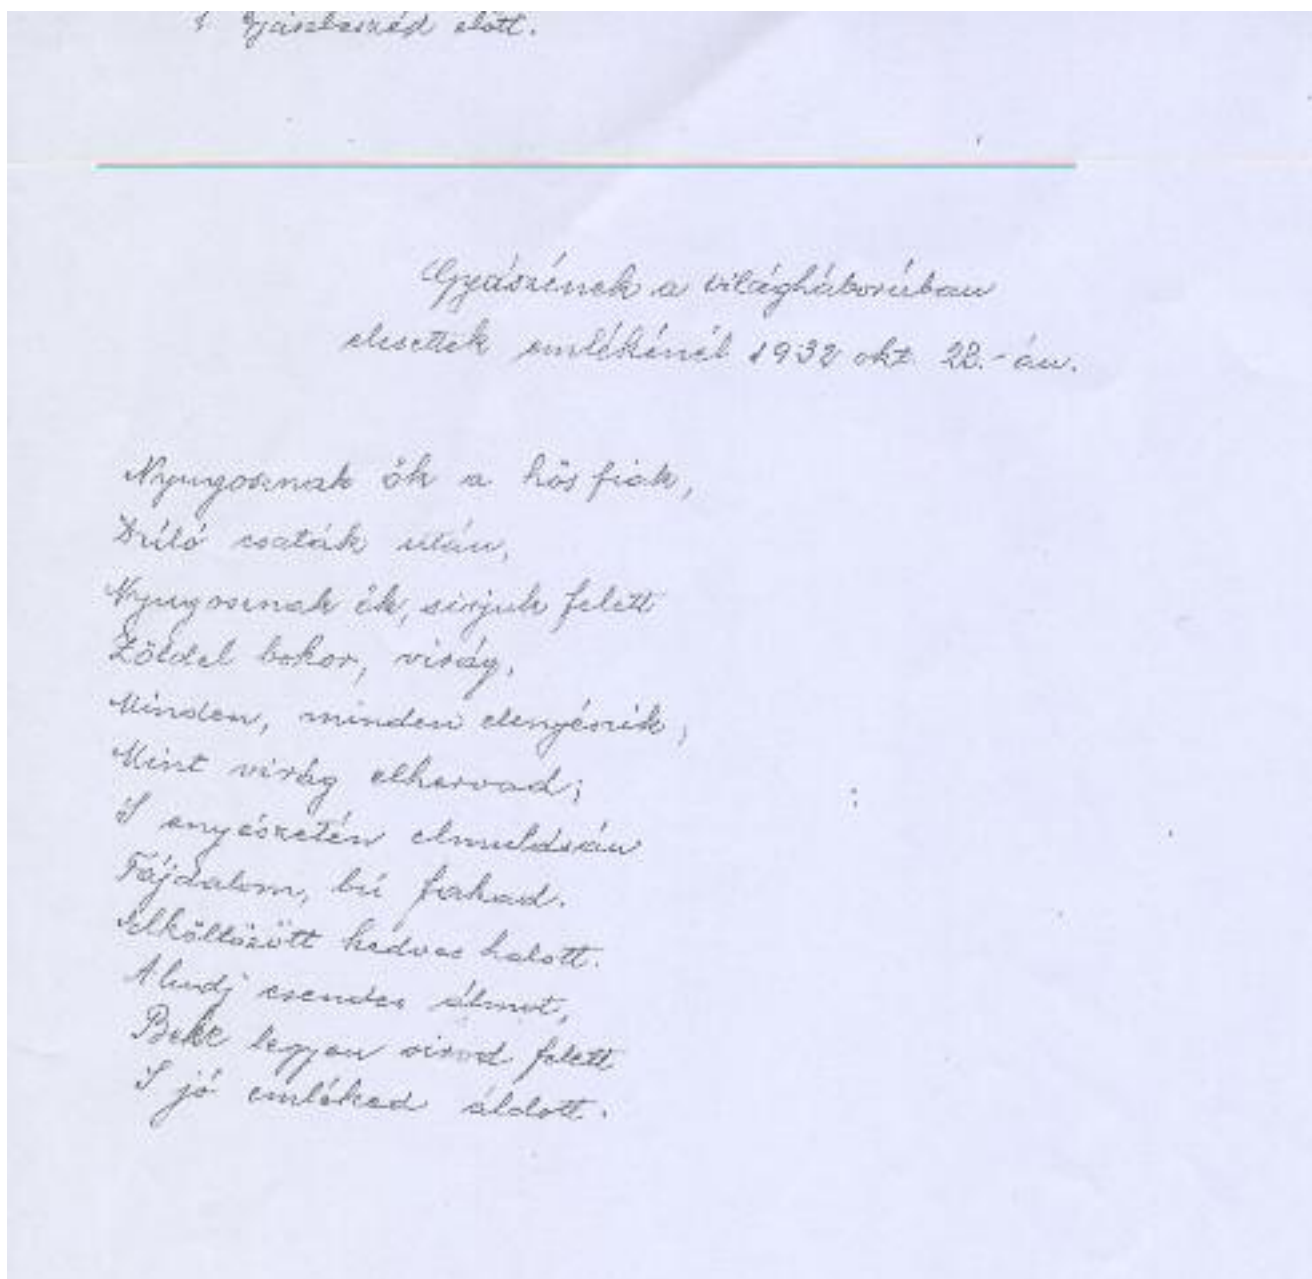 Gyászbeszéd előtt.
Gyászének a világháborúban
elesettek emlékénél 1932 okt. 28.-án.
Nyugosznak ők a hős fiak,
Dúló csaták után,
Nyugosznak ők, sirjuk felett
Zöldel bokor, virág.
Minden, minden elenyészik,
Mint virág elhervad;
S enyészetén elmulásán
Fájdalom, bú fakad.
Elköltözött kedves halott.
Aludj csendes álmot,
Beke legyen sirod felett
S jó emléked áldott.